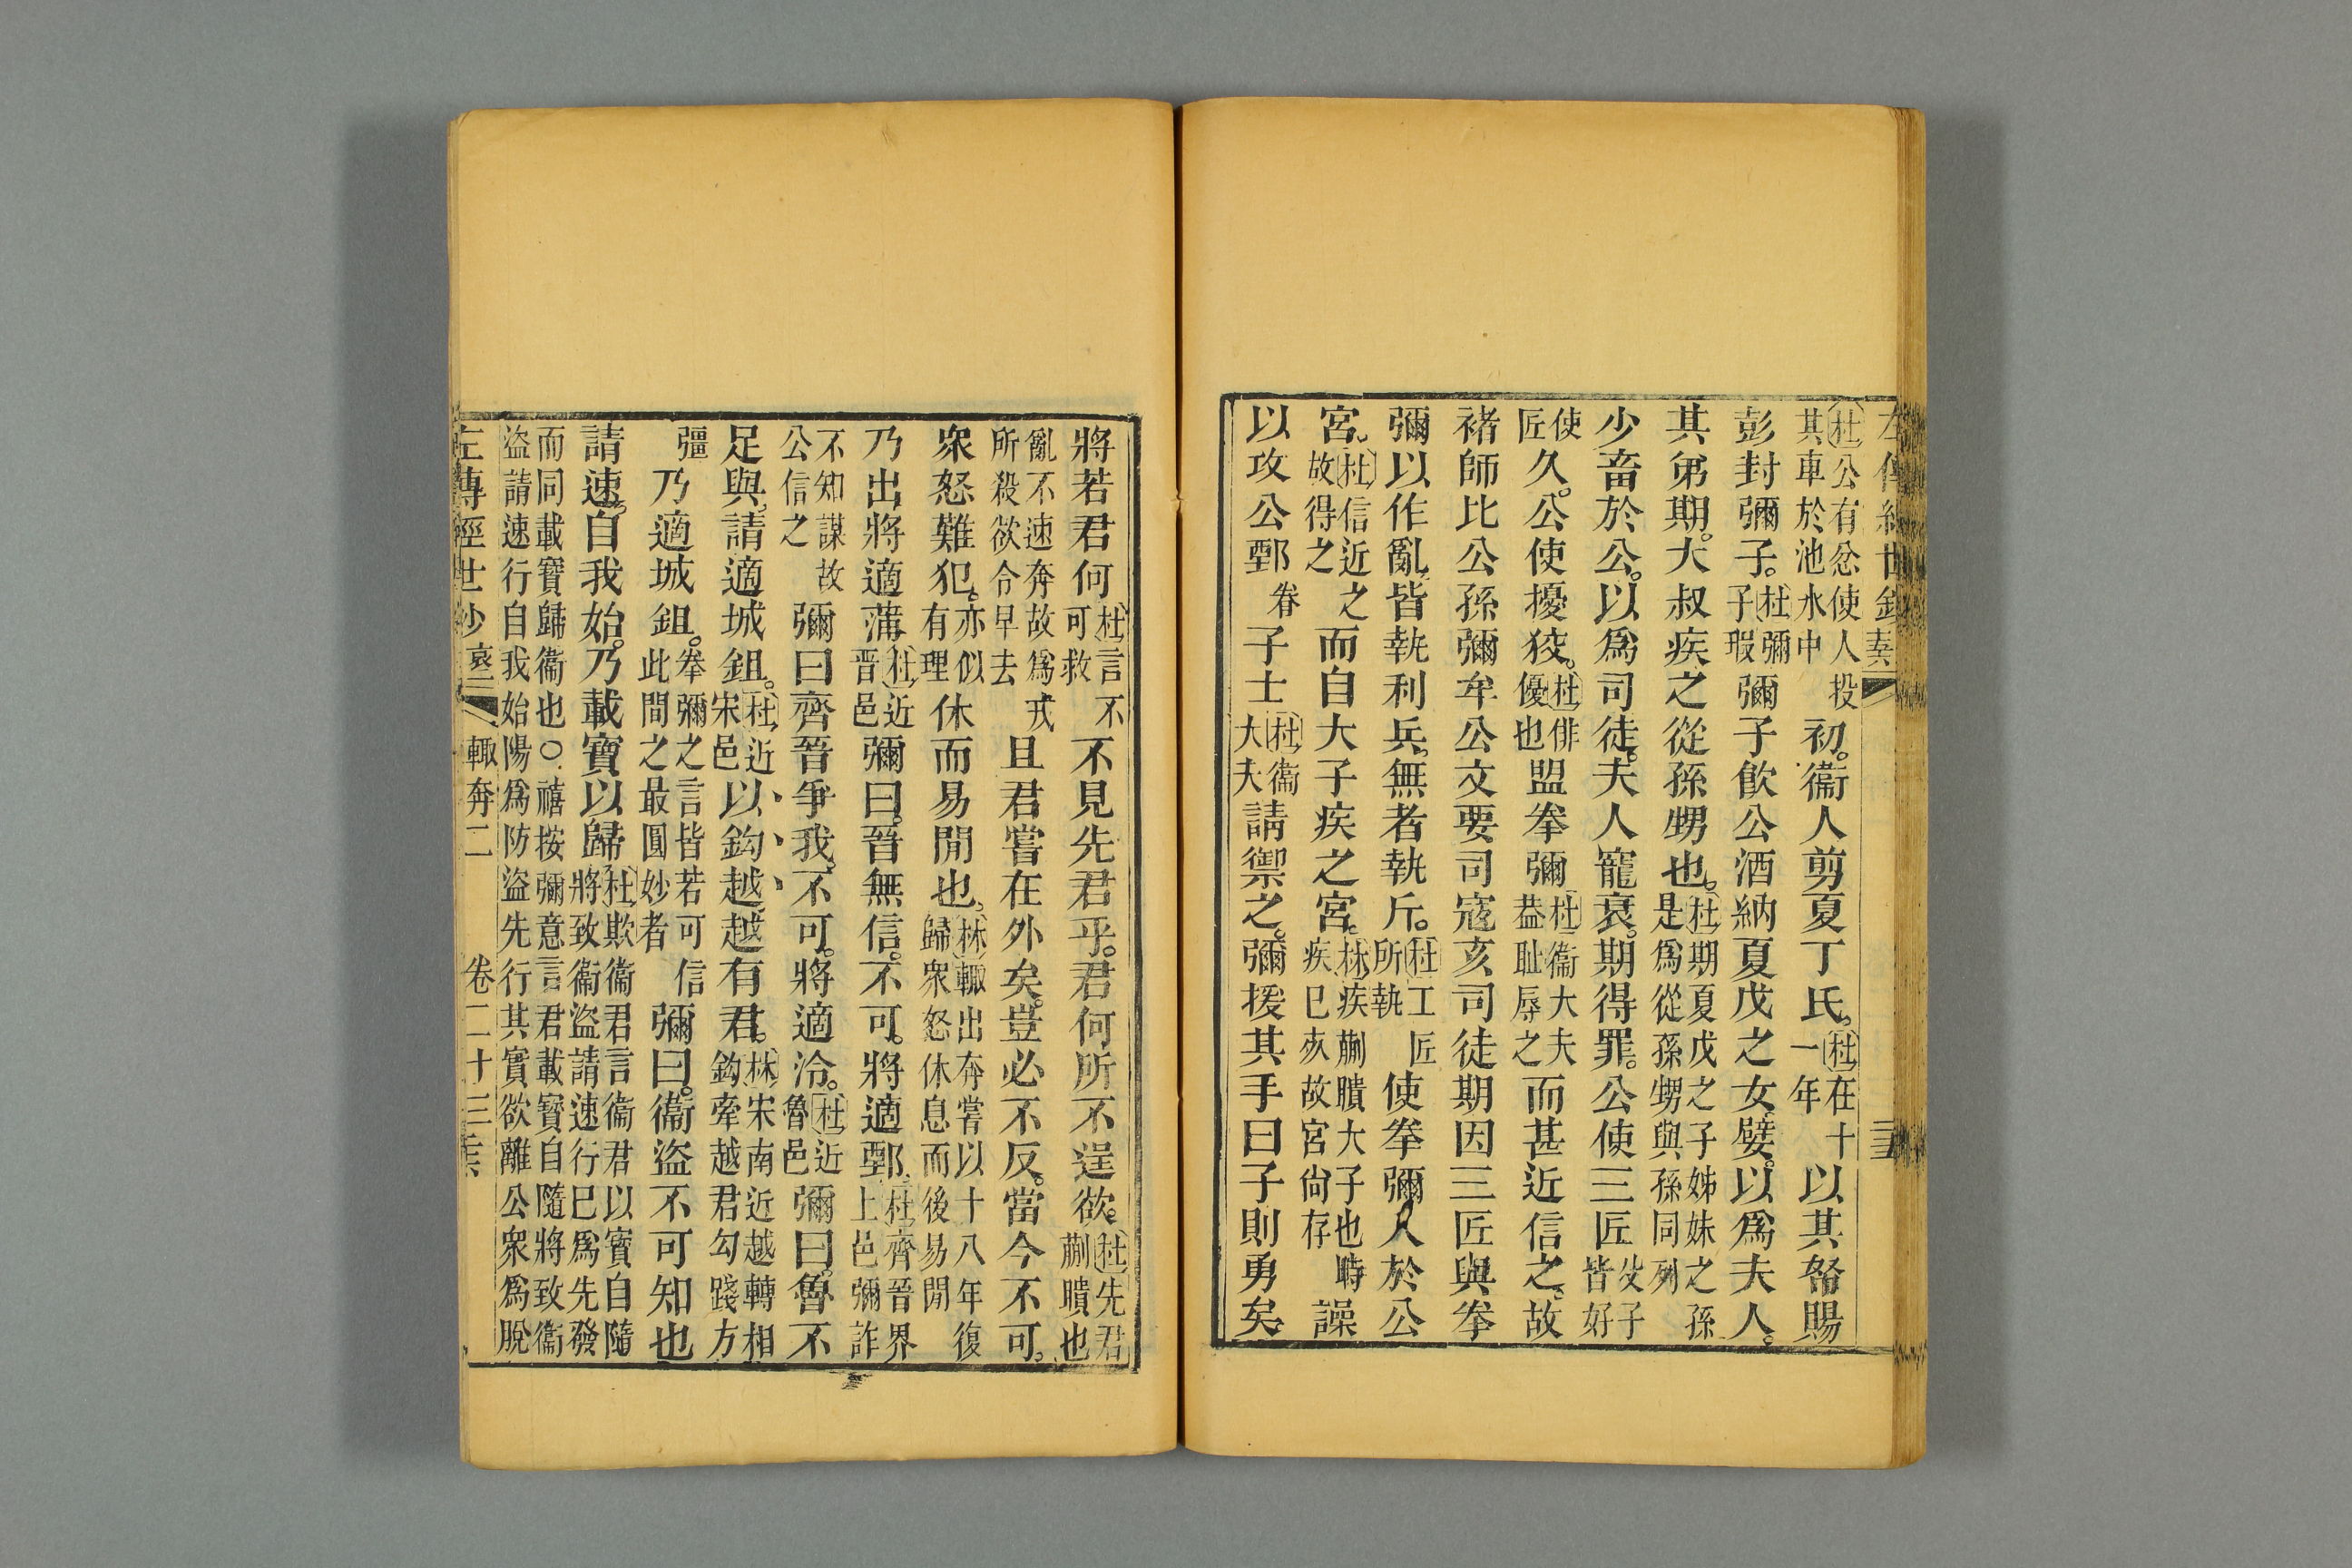 左傳經世鈔
杜公有忿使人投其車於池水中初。衞人剪夏丁氏。杜在十一年以其帑賜
彭封彌子。杜彌子瑕彌子飲公酒納夏戊之女嬖。以爲夫人。
其弟期。大叔疾之從孫甥也。杜期夏戊之子姊妹之孫是爲從孫甥與孫同列
少畜於公。以爲司徒。夫人寵衰。期得罪。公使三匠父子皆好
使匠久。公使擾狡。杜俳優也盟拳彌杜衞大夫葢恥辱之而甚近信之。故
褚師比公孫彌牟公文要司寇亥司徒期因三匠與拳
彌以作亂皆執利兵。無者執斤。杜工匠所執使拳彌入於公
宮。杜信近之故得之而自大子疾之宮。林疾蒯聵大子也時疾已死故宮尙存譟
以攻公鄄眷子士杜衞大夫請禦之。彌援其手曰子則勇矣
將若君何杜言不可救不見先君乎。君何所不逞欲。杜先君蒯聵也
亂不速奔故爲戎所殺欲令早去且君嘗在外矣。豈必不反。當今不可。
衆怒難犯。亦似有理休而易閒也。林輒出奔嘗以十八年復歸衆怒休息而後易閒
乃出將適蒲杜近晋邑彌曰。晉無信。不可。將適鄄。杜齊晉界上邑彌詐
不知謀故公信之彌曰齊晉爭我。不可。將適泠。杜近魯邑彌曰。魯不
足與。請適城鉏。杜近宋邑以鈎越越有君。林宋南近越轉相鈎牽越君勾踐方
彊乃適城鉏。拳彌之言皆若可信此間之最圓妙者彌曰。衞盜不可知也
請速。自我始。乃載寶以歸杜欺衞君言衞君以寶自隨將致衞盜請速行已爲先發
而同載寶歸衞也〇禧按彌意言君載寶自隨將致衞盜請速行自我始陽爲防盜先行其實欲離公衆爲脫
左傳經世鈔 哀三 輒奔二 卷二十三